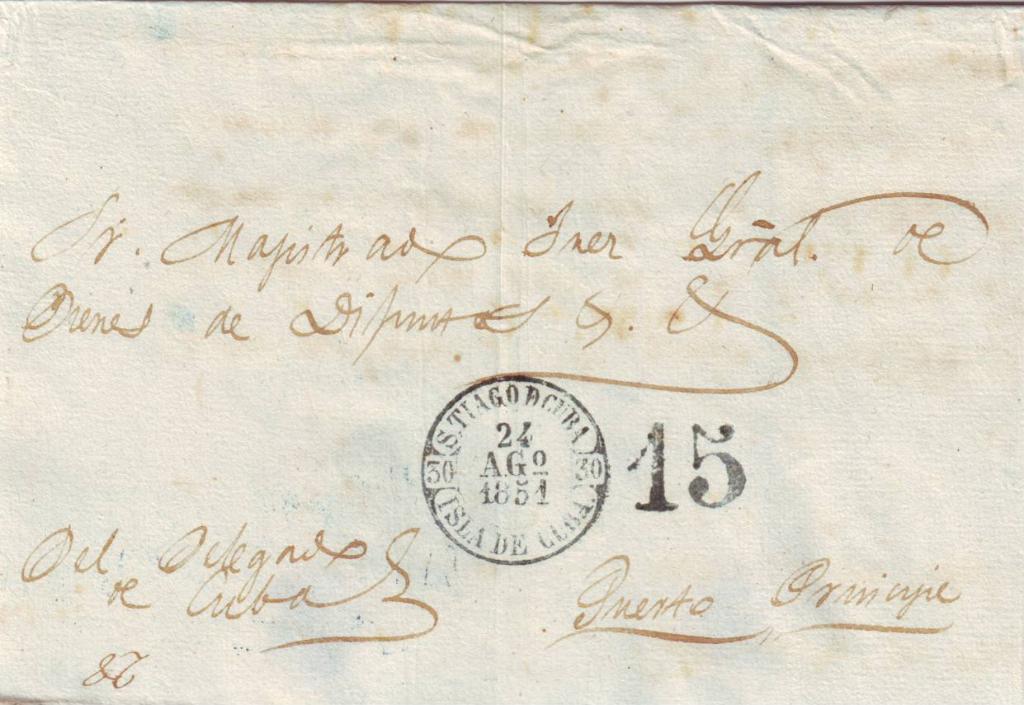 Sr. Magistrado Juez Gral. de
Bienes de Difuntos &. &
S. TIAGO D CUBA
30 24 30
AGº
1851
ISLA DE CUBA.
15
Del Delegado
de Cuba
Puerto Principe